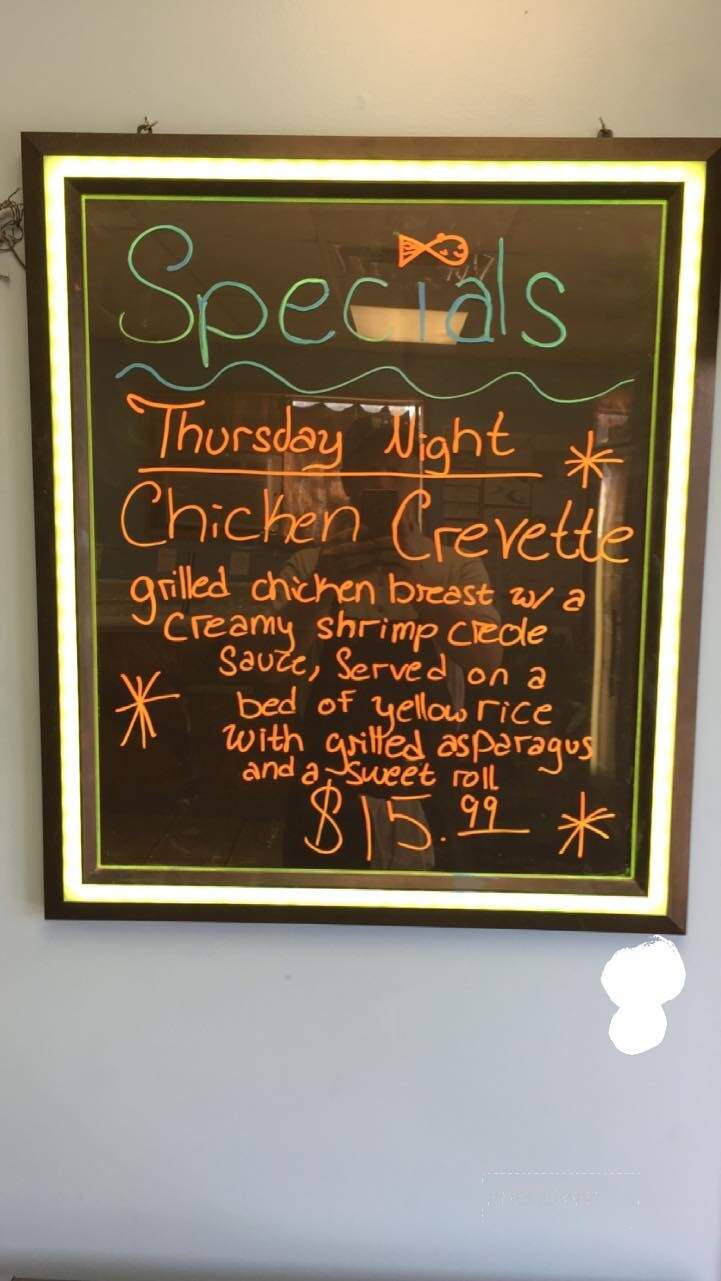 Specials
Thursday Night
Chicken Crevette
grilled chicken breast w/ a
creamy shrimp creole
sauce, served on a
bed of yellow rice
with grilled asparagus
and a sweet roll
$15.99